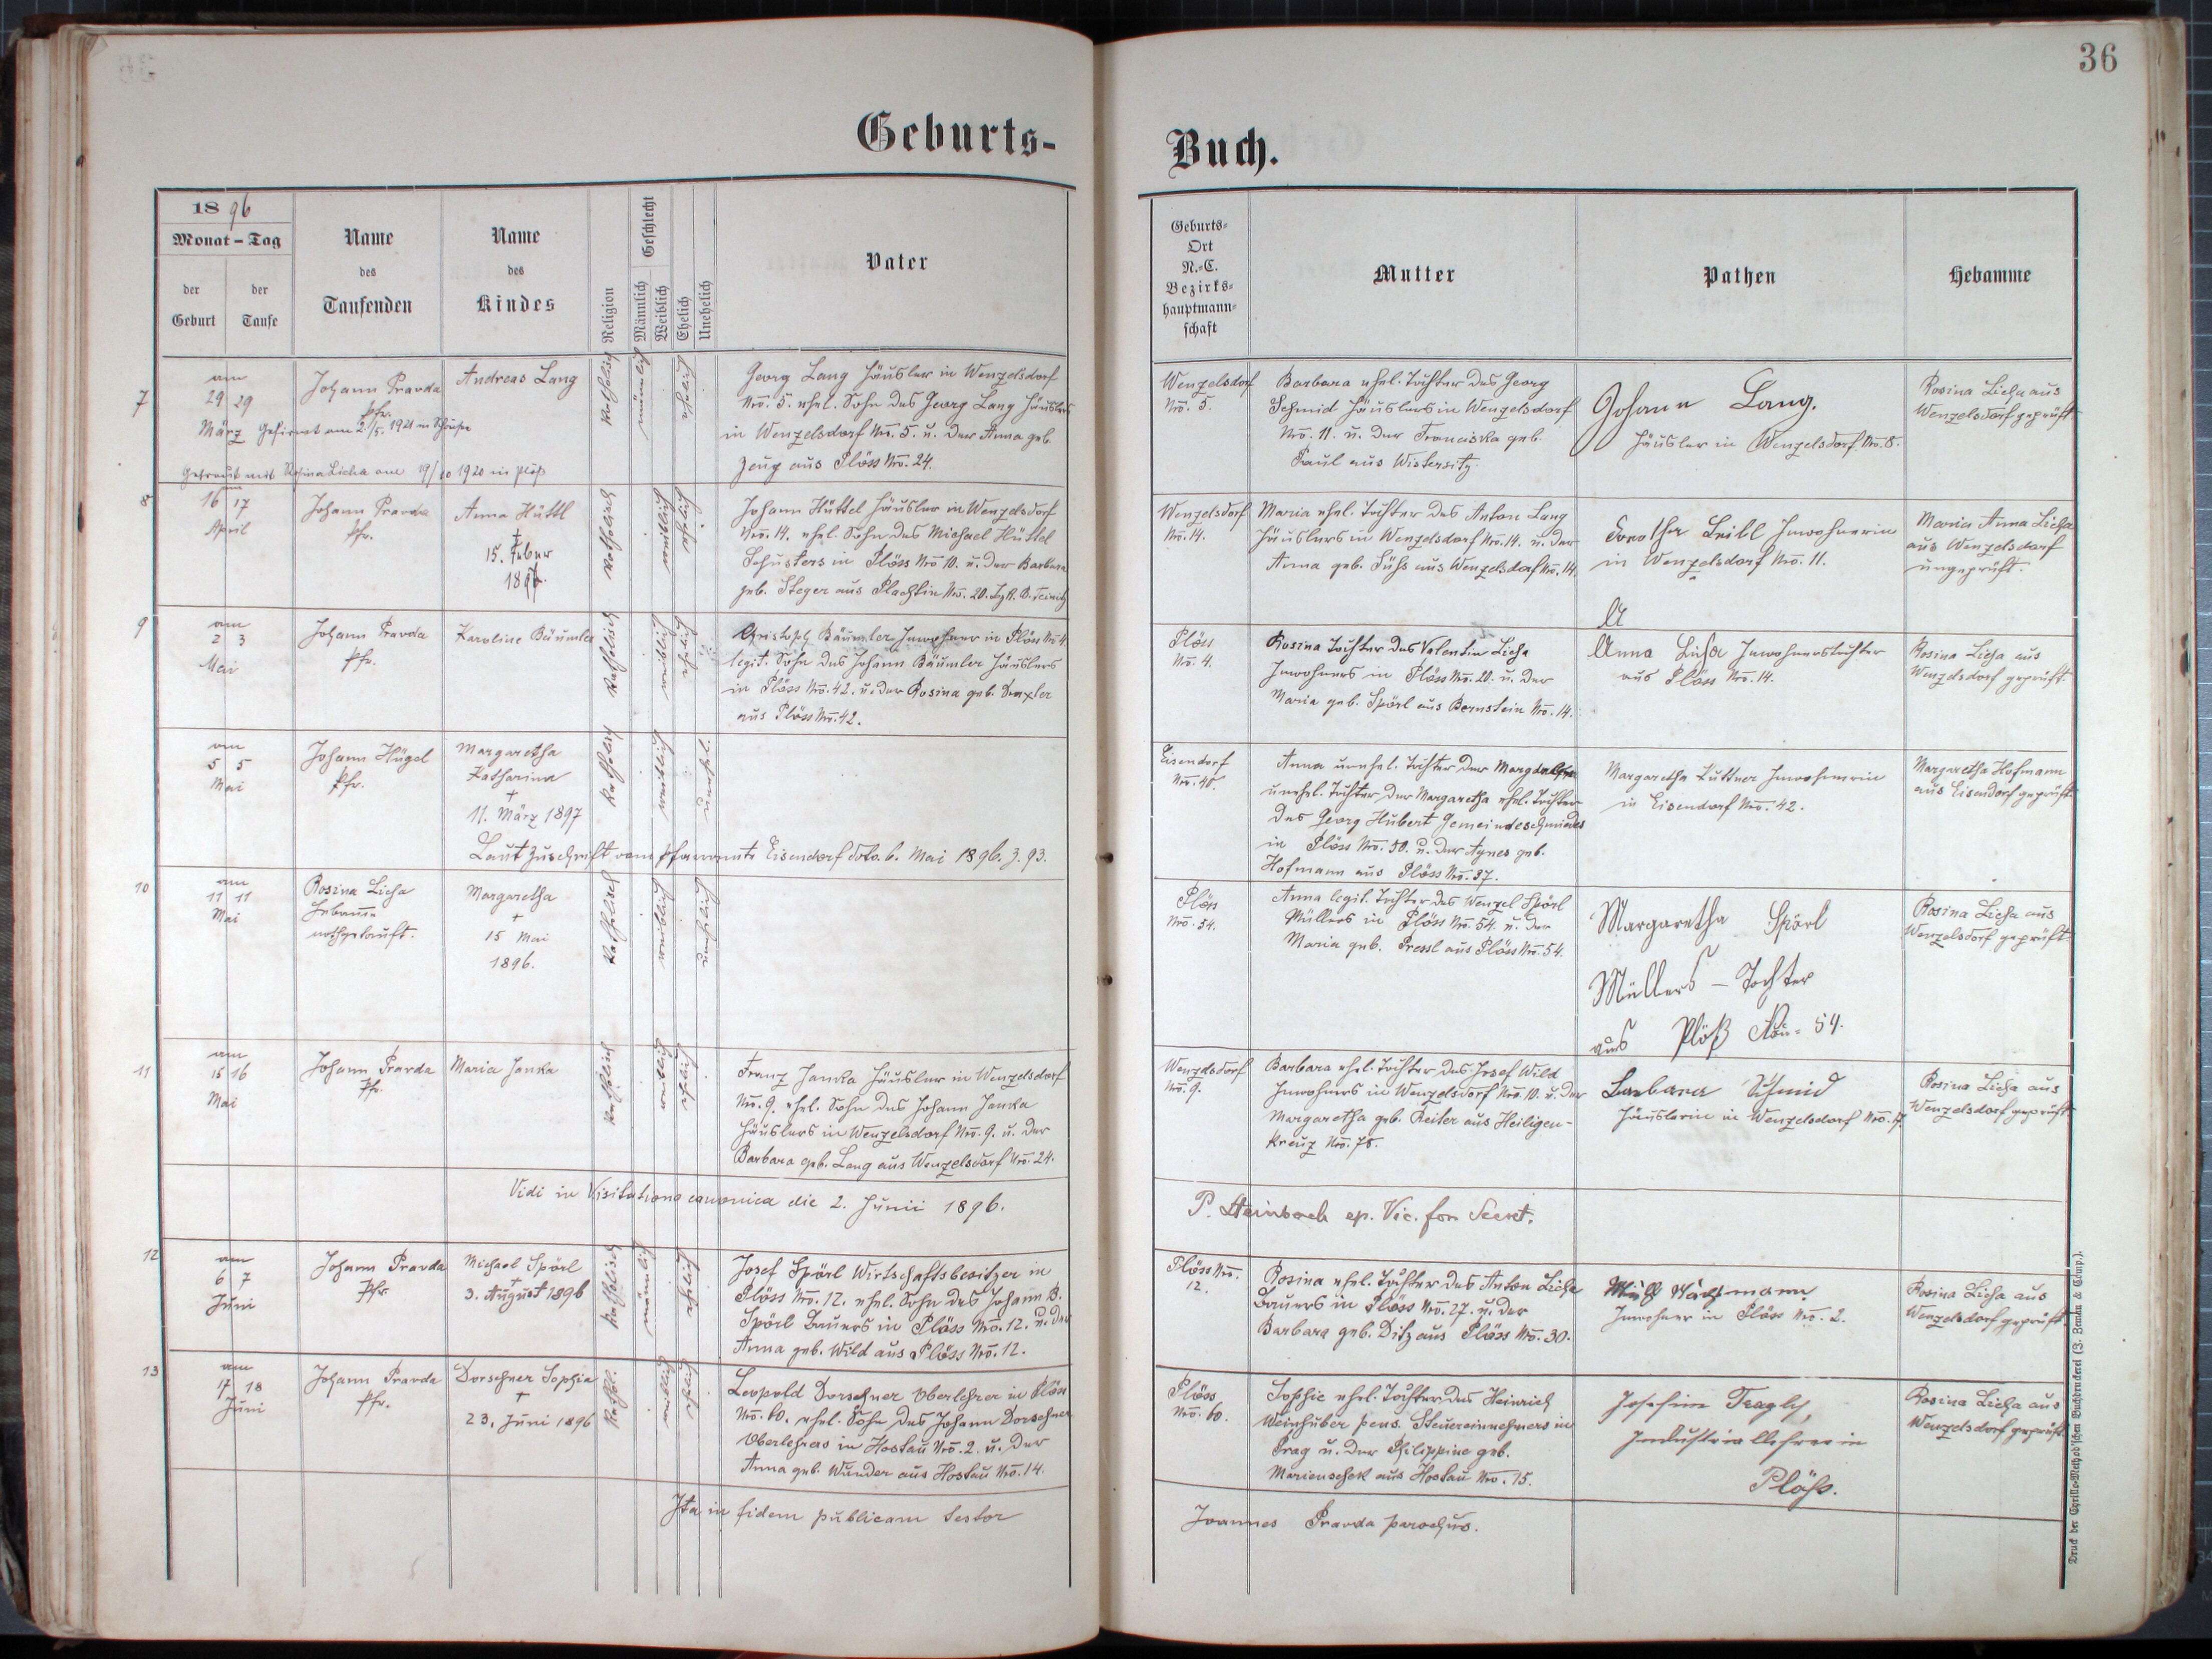 36
Geburts-
Buch.
18 96
Monat - Tag
der Geburt
der Taufe
Name des Taufenden
Name des Kindes
Religion
Geschlecht
Männlich
Weiblich
Ehelich
Unehelich
Vater
Geburts-
Ort
N.-C.
Bezirks-
hauptmann-
schaft
Mutter
Pathen
Hebamme
7
am
29 29
März
Johann Pravda
Pfr.
Andreas Lang
katholisch
männlich
ehelich
Georg Lang Häusler in Wenzelsdorf
Nro. 5. ehel. Sohn des Georg Lang Häuslers
in Wenzelsdorf Nro. 5. u. der Anna geb.
Zeug aus Plöss Nro. 24.
Gefirmt am 2./5. 1921 in
Getraut mit Rosina Licha am 19/10 1920 in Plöß
Wenzelsdorf
Nro. 5.
Barbara ehel. Tochter des Georg
Schmid Häuslers in Wenzelsdorf
Nro. 11. u. der Franciska geb.
Paul aus Wistersitz.
Johann Lang.
Häusler in Wenzelsdorf Nro. 8.
Rosina Licha aus
Wenzelsdorf geprüft
8
am
16 17
April
Johann Pravda
Pfr.
Anna Hüttl
†
15. Feber
1897.
katholisch
weiblich
ehelich
Johann Hüttel Häusler in Wenzelsdorf
Nro. 14. ehel. Sohn des Michael Hüttel
Schusters in Plöss Nro 10. u. der Barbara
geb. Steger aus Plachtin Nro. 20. B. Teinitz
Wenzelsdorf
Nro. 14.
Maria ehel. Tochter des Anton Lang
Häuslers in Wenzelsdorf Nro. 14. u. der
Anna geb. Süß aus Wenzelsdorf Nro. 14.
Dorothea Leibl Inwohnerin
in Wenzelsdorf Nro. 11.
Maria Anna Licha
aus Wenzelsdorf
ungeprüft.
9
am
2 3
Mai
Johann Pravda
Pfr.
Karoline Bäumler
katholisch
weiblich
ehelich
Christoph Bäumler Inwohner in Plöss Nro 4.
legit. Sohn des Johann Bäumler Häuslers
in Plöss Nro. 42. u. der Rosina geb. Drexler
aus Plöss Nro. 42.
Plöss
Nro. 4.
Rosina Tochter des Valentin Licha
Inwohners in Plöss Nro. 20. u. der
Maria geb. Spörl aus Bernstein Nro. 14.
A
Anna Licha Inwohnerstochter
aus Plöss Nro. 14.
Rosina Licha aus
Wenzelsdorf geprüft.
am
5 5
Mai
Johann Hügel
Pfr.
Margaretha
Katharina
†
11. März 1897
katholisch
weiblich
unehel.
Laut Zuschrift vom Pfarramte Eisendorf ddo. 6. Mai 1896. Z. 93.
Eisendorf
Nro. 40.
Anna unehel. Tochter der Margaretha
unehel. Tochter der Margaretha ehel. Tochter
des Georg Hubert Gemeindeschmiedes
in Plöss Nro. 50. u. der Agnes geb.
Hofmann aus Plöss Nro. 37.
Margaretha Kuttner Inwohnerin
in Eisendorf Nro. 42.
Margaretha Hofmann
aus Eisendorf geprüft
10
am
11 11
Mai
Rosina Licha
Hebamme
nothgetauft.
Margaretha
†
15 Mai
1896.
katholisch
weiblich
unehelich
Plöss
Nro. 54.
Anna legit. Tochter des Wenzel Spörl
Müllers in Plöss Nro. 54. u. der
Maria geb. Pressl aus Plöss Nro. 54.
Margaretha Spörl
Müllers - Tochter
aus Plöß Nro. 54.
Rosina Licha aus
Wenzelsdorf geprüft
11
am
15 16
Mai
Johann Pravda
Pfr.
Maria Janka
katholisch
weiblich
ehelich
Franz Janka Häusler in Wenzelsdorf
Nro. 9. ehel. Sohn des Johann Janka
Häuslers in Wenzelsdorf Nro. 9. u. der
Barbara geb. Lang aus Wenzelsdorf Nro. 24.
Wenzelsdorf
Nro. 9.
Barbara ehel. Tochter des Josef Wild
Inwohners in Wenzelsdorf Nro. 10. u. der
Margaretha geb. Reiter aus Heiligen-
kreuz Nro. 78.
Barbara Schmid
Häuslerin in Wenzelsdorf Nro. 17
Rosina Licha aus
Wenzelsdorf geprüft
Vidi in Visitatione canonica die 2. Junii 1896.
P. Steinbach ep. Vic. for. Secret.
12
am
6 7
Juni
Johann Pravda
Pfr.
Michael Spörl
†
3. August 1896
katholisch
männlich
ehelich
Josef Spörl Wirtschaftsbesitzer in
Plöss Nro. 12. ehel. Sohn des Johann B.
Spörl Bauers in Plöss Nro. 12. u. der
Anna geb. Wild aus Plöss Nro. 12.
Plöss Nro.
12.
Rosina ehel. Tochter des Anton Licha
Bauers in Plöss Nro. 27. u. der
Barbara geb. Ditz aus Plöss Nro. 30.
Inwohner in Plöss Nro. 2.
Rosina Licha aus
Wenzelsdorf geprüft.
13
am
17 18
Juni
Johann Pravda
Pfr.
Dorschner Sophia
†
23. Juni 1896
kathol.
weiblich
ehelich
Leopold Dorschner Oberlehrer in Plöss
Nro. 60. ehel. Sohn des Johann Dorschner
Oberlehrers in Hostau Nro. 2. u. der
Anna geb. Wunder aus Hostau Nro. 14.
Plöss
Nro. 60.
Sophie ehel. Tochter des Heinrich
Weinhuber pens. Steuereinnehmers in
Prag u. der Philippine geb.
Marienschek aus Hostau Nro. 15.
Josefine Tragly,
Industriallehrerin
Plöss.
Rosina Licha aus
Wenzelsdorf geprüft
Ita in fidem publicam testor
Joannes Pravda parochus.
Druck der Cyrillo-Method'schen Buchdruckerei (J. Zeman & Comp.).